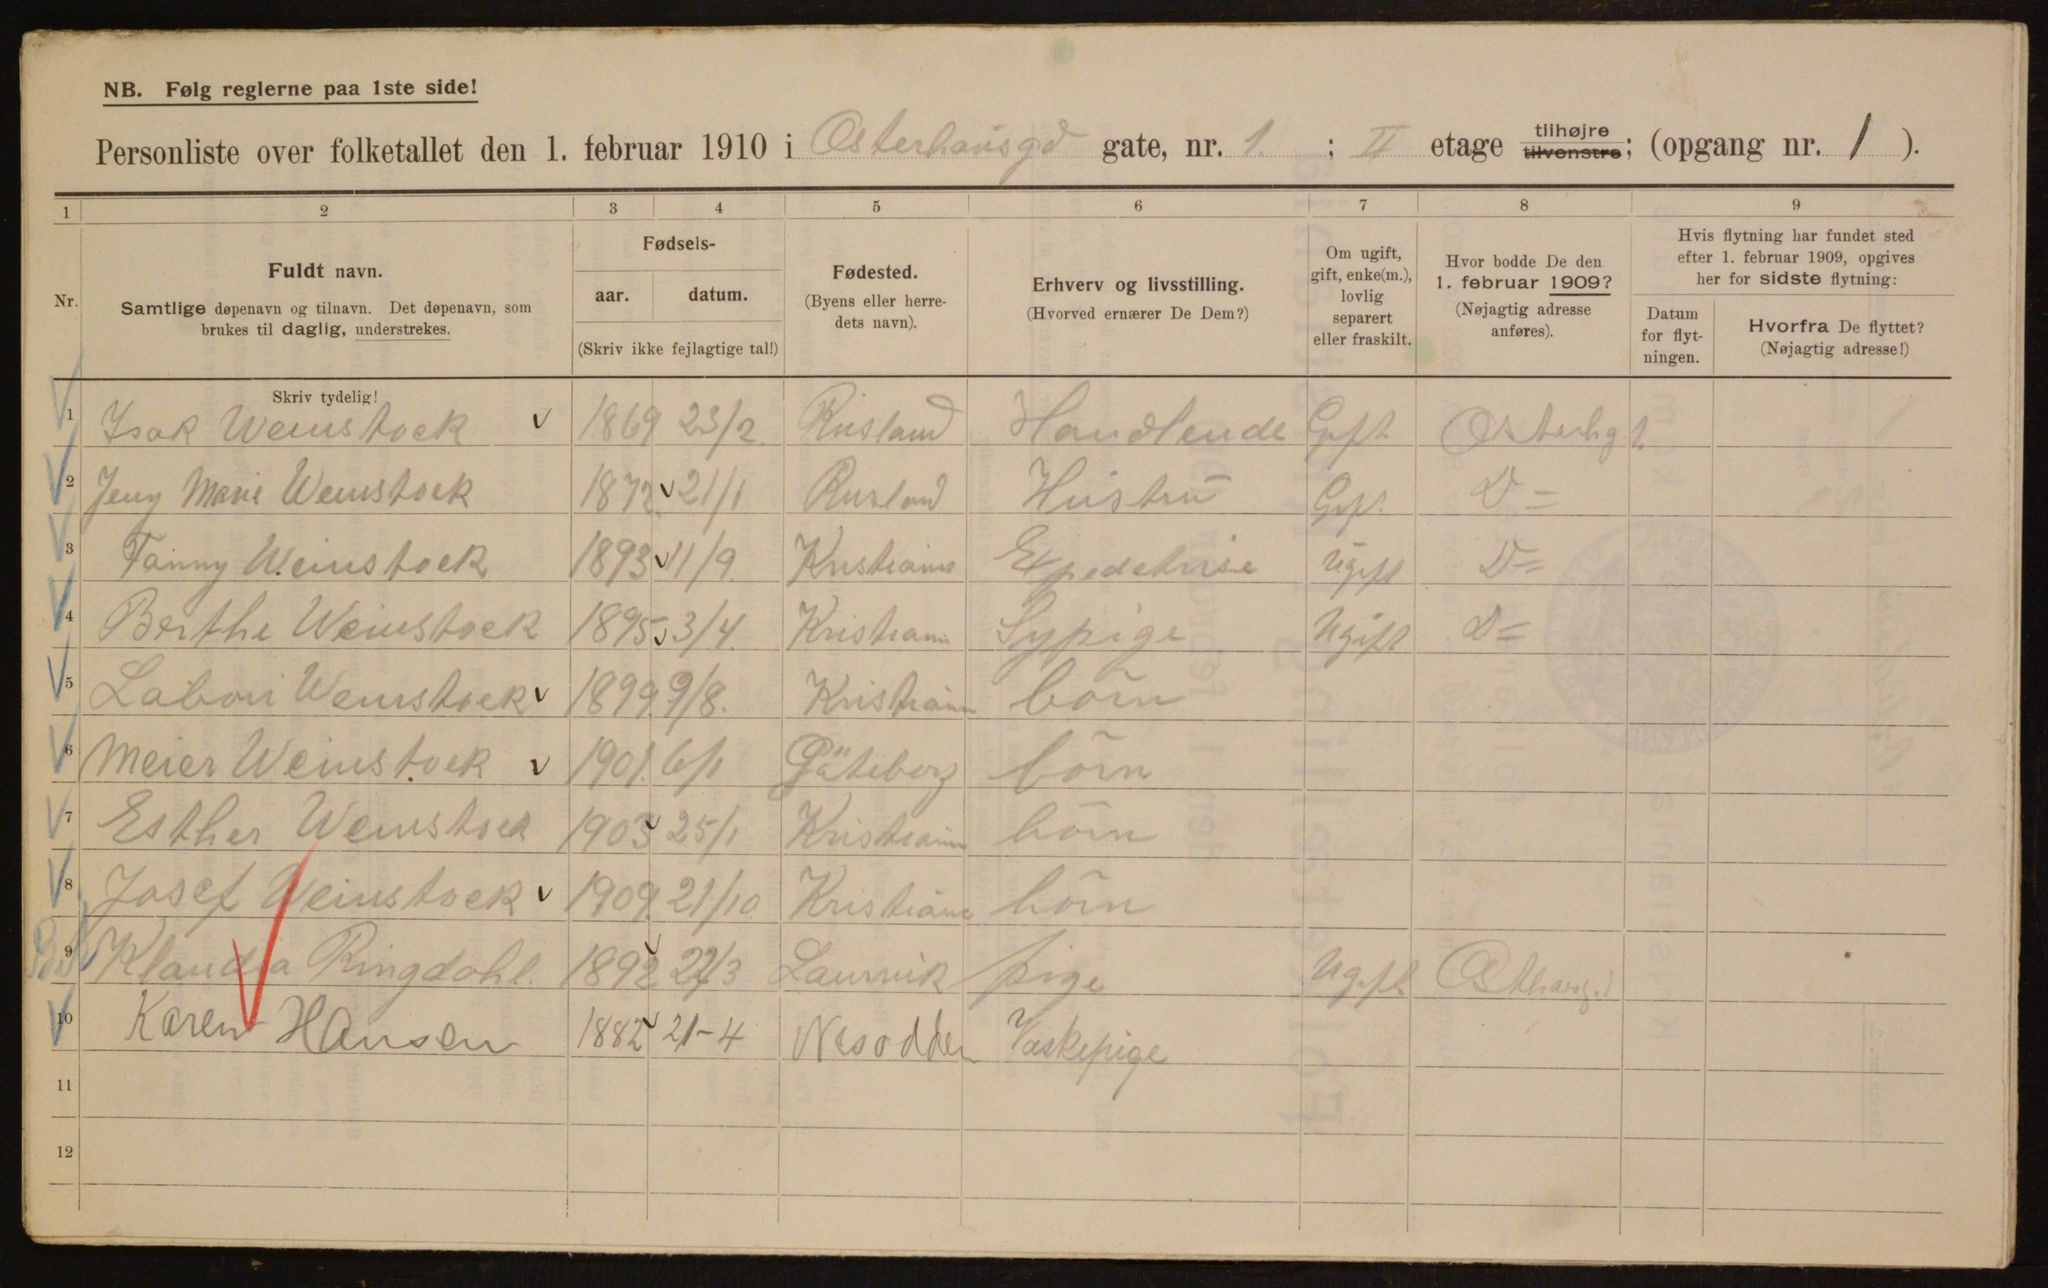 NB. Følg reglerne paa 1ste side!
Personliste over folketallet den 1. februar 1910 i Osterhausgd gate, nr. 1. ; II etage tilhøjre tilvenstre; (opgang nr. 1 ).
1 2 3 4 5 6 7 8 9
Nr.
Fuldt navn.
Samtlige døpenavn og tilnavn. Det døpenavn, som
brukes til daglig, understrekes.
Fødsels-
aar. datum.
(Skriv ikke fejlagtige tal!)
Fødested.
(Byens eller herre-
dets navn).
Erhverv og livsstilling.
(Hvorved ernærer De Dem?)
Om ugift,
gift, enke(m.),
lovlig
separert
eller fraskilt.
Hvor bodde De den
1. februar 1909?
(Nøjagtig adresse
anføres).
Hvis flytning har fundet sted
efter 1. februar 1909, opgives
her for sidste flytning:
Datum
for flyt-
ningen.
Hvorfra De flyttet?
(Nøjagtig adresse!)
Skriv tydelig!
1 Isak Weinstock 1869 23/2 Rusland Handlende Gift Osterhg 1.
2 Jeny Marie Weinstock 1872 21/1 Rusland Hustru Gift D =
3 Fanny Weinstock 1893 11/9 Kristiania Expedetrise Ugift D =
4 Berthe Weinstock 1895 3/4 Kristiania Sypige Ugift D =
5 Labori Weinstock 1899 9/8. Kristiania börn
6 Meier Weinstock 1901. 6/1 Göteborg börn
7 Esther Weinstock 1903 25/1 Kristiania börn
8 Josef Weinstock 1909 21/10 Kristiania börn
9 Klaudia Ringdahl. 1892 22/3 Laurvik pige Ugift
10 Karen Hansen 1882 21-4 Nesodden Vaskepige
11
12